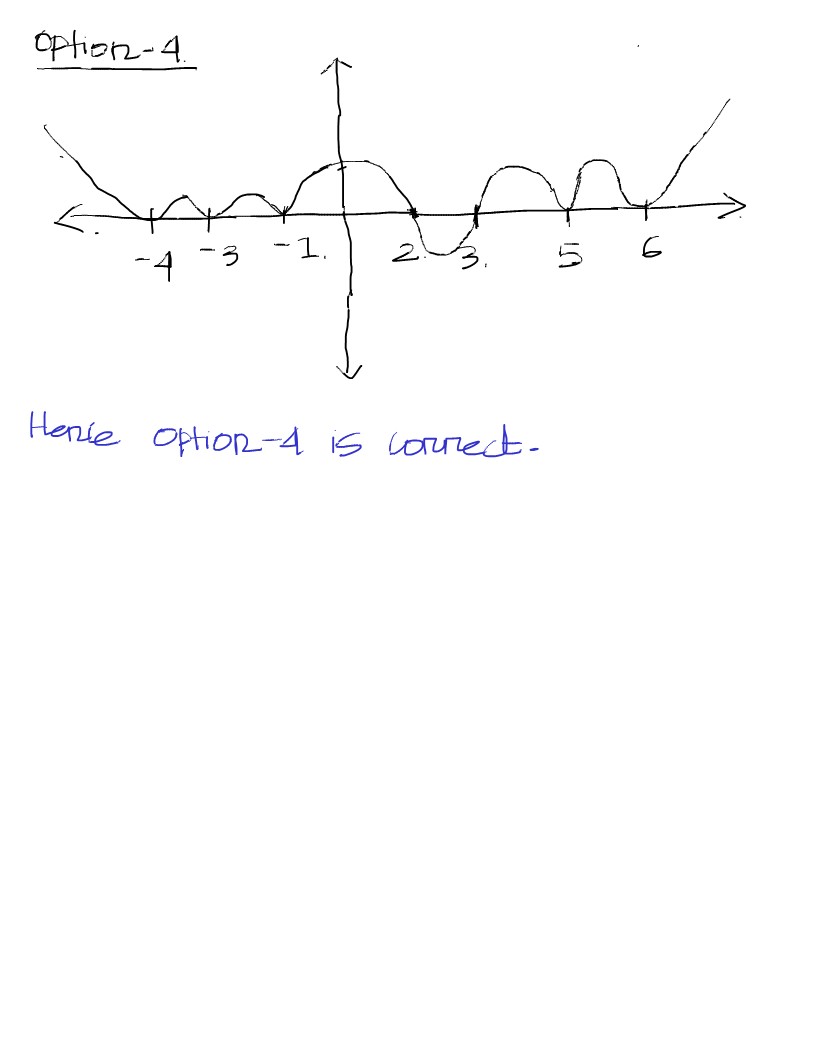 Option-4.
-4 -3 -1. 2. 3. 5 6
Hence option-4 is correct.